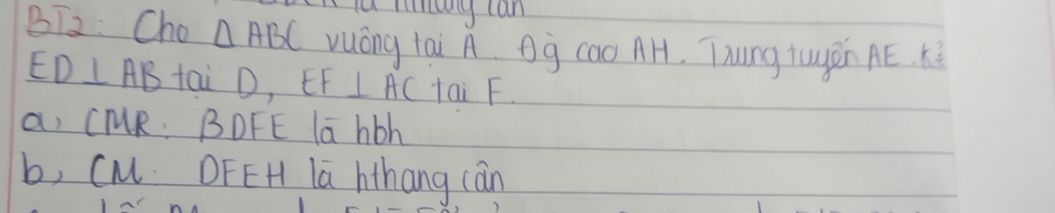 là hthang cân
BT2: Cho Δ ABC vuông tại A. Đg cao AH. Trung tuyến AE. Kẻ
ED ⊥ AB tại D, EF ⊥ AC tại F.
a, CMR: BDFE là hbh
b, CM: DFEH là hthang cân